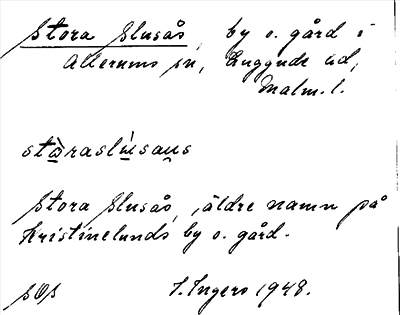 Stora Slusås, by o. gård i
Allerums sn, Luggude hd,
Malm. l.
stàraslùsau̯s
Stora Slusås, äldre namn på
Kristinelunds by o. gård.
SOS I. Ingers 1948.